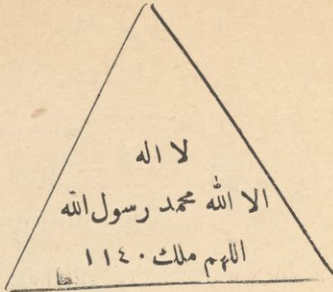 لا اله
الا الله محمد رسول الله
اللهم ملك ١١٤٠